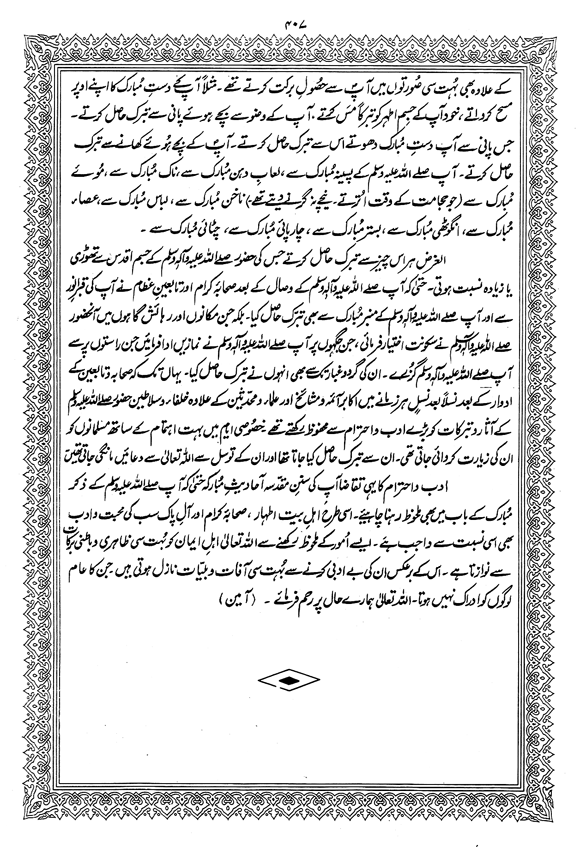 ۴۰۷
کے علاوہ بھی بہت سی صورتوں میں آپ سے حصولِ برکت کرتے تھے۔ مثلاً آپ کے دستِ مبارک کا اپنے اوپر
مسح کرواتے، خود آپ کے جسمِ اطہر کو تبرکاً مَس کرتے۔ آپ کے وضو سے بچے ہوئے پانی سے تبرک حاصل کرتے۔
جس پانی سے آپ دستِ مبارک دھوتے اس سے تبرک حاصل کرتے۔ آپ کے بچے ہوئے کھانے سے تبرک
حاصل کرتے۔ آپ صلے اللہ علیہ وسلم کے پسینہ مبارک سے، لعابِ دہن مبارک سے، ناک مبارک سے، مُوئے
مبارک سے (جو حجامت کے وقت اُترتے۔ نیچے نہ گرنے دیتے تھے) ناخن مبارک سے، لباس مبارک سے، عصاء
مبارک سے، انگوٹھی مبارک سے، بستر مبارک سے، چارپائی مبارک سے، چٹائی مبارک سے۔
الغرض ہر اس چیز سے تبرک حاصل کرتے جس کی حضور صلے اللہ علیہ وآلہٖ وسلم کے جسمِ اقدس سے تھوڑی
یا زیادہ نسبت ہوتی۔ حتٰی کہ آپ صلے اللہ علیہ وآلہٖ وسلم کے وصال کے بعد صحابہ کرام اور تابعین عظام نے آپ کی قبرِ انور
سے اور آپ صلے اللہ علیہ وآلہٖ وسلم کے منبر مبارک سے بھی تبرک حاصل کیا۔ بلکہ جن مکانوں اور رہائش گاہوں میں آنحضور
صلے اللہ علیہ وآلہٖ وسلم نے سکونت اختیار فرمائی، جن جگہوں پر آپ صلے اللہ علیہ وآلہٖ وسلم نے نمازیں ادا فرمائیں جن راستوں پر سے
آپ صلے اللہ علیہ وآلہٖ وسلم گزرے۔ ان کی گرد و غبار تک سے بھی انہوں نے تبرک حاصل کیا۔ یہاں تک کہ صحابہ و تابعین کے
ادوار کے بعد نسلاً بعد نسلٍ ہر زمانے میں اکابر آئمہ و مشائخ اور علماء و محدثین کے علاوہ خلفاء و سلاطین حضور صلے اللہ علیہ وسلم
کے آثار و تبرکات کو بڑے ادب و احترام سے محفوظ رکھتے تھے خصوصی ایام میں بہت اہتمام کے ساتھ مسلمانوں کو
ان کی زیارت کروائی جاتی تھی۔ ان سے تبرک حاصل کیا جاتا تھا اور ان کے توسل سے اللہ تعالیٰ سے دعائیں مانگی جاتی تھیں
ادب و احترام کا یہی تقاضا آپ کی سننِ مقدسہ آحادیثِ مبارکہ حتٰی کہ آپ صلے اللہ علیہ وسلم کے ذکرِ
مبارک کے باب میں بھی ملحوظ رہنا چاہیئے۔ اسی طرح اہلِ بیت اطہار، صحابہ کرام اور آلِ پاک سب کی محبت و ادب
بھی اسی نسبت سے واجب ہے۔ ایسے اُمور کے ملحوظ رکھنے سے اللہ تعالیٰ اہلِ ایمان کو بہت سی ظاہری و باطنی برکات
سے نوازتا ہے۔ اس کے برعکس ان کی بے ادبی کرنے سے بہت سی آفات و بلیات نازل ہوتی ہیں جن کا عام
لوگوں کو ادراک نہیں ہوتا۔ اللہ تعالیٰ ہمارے حال پر رحم فرمائے۔ (آمین)